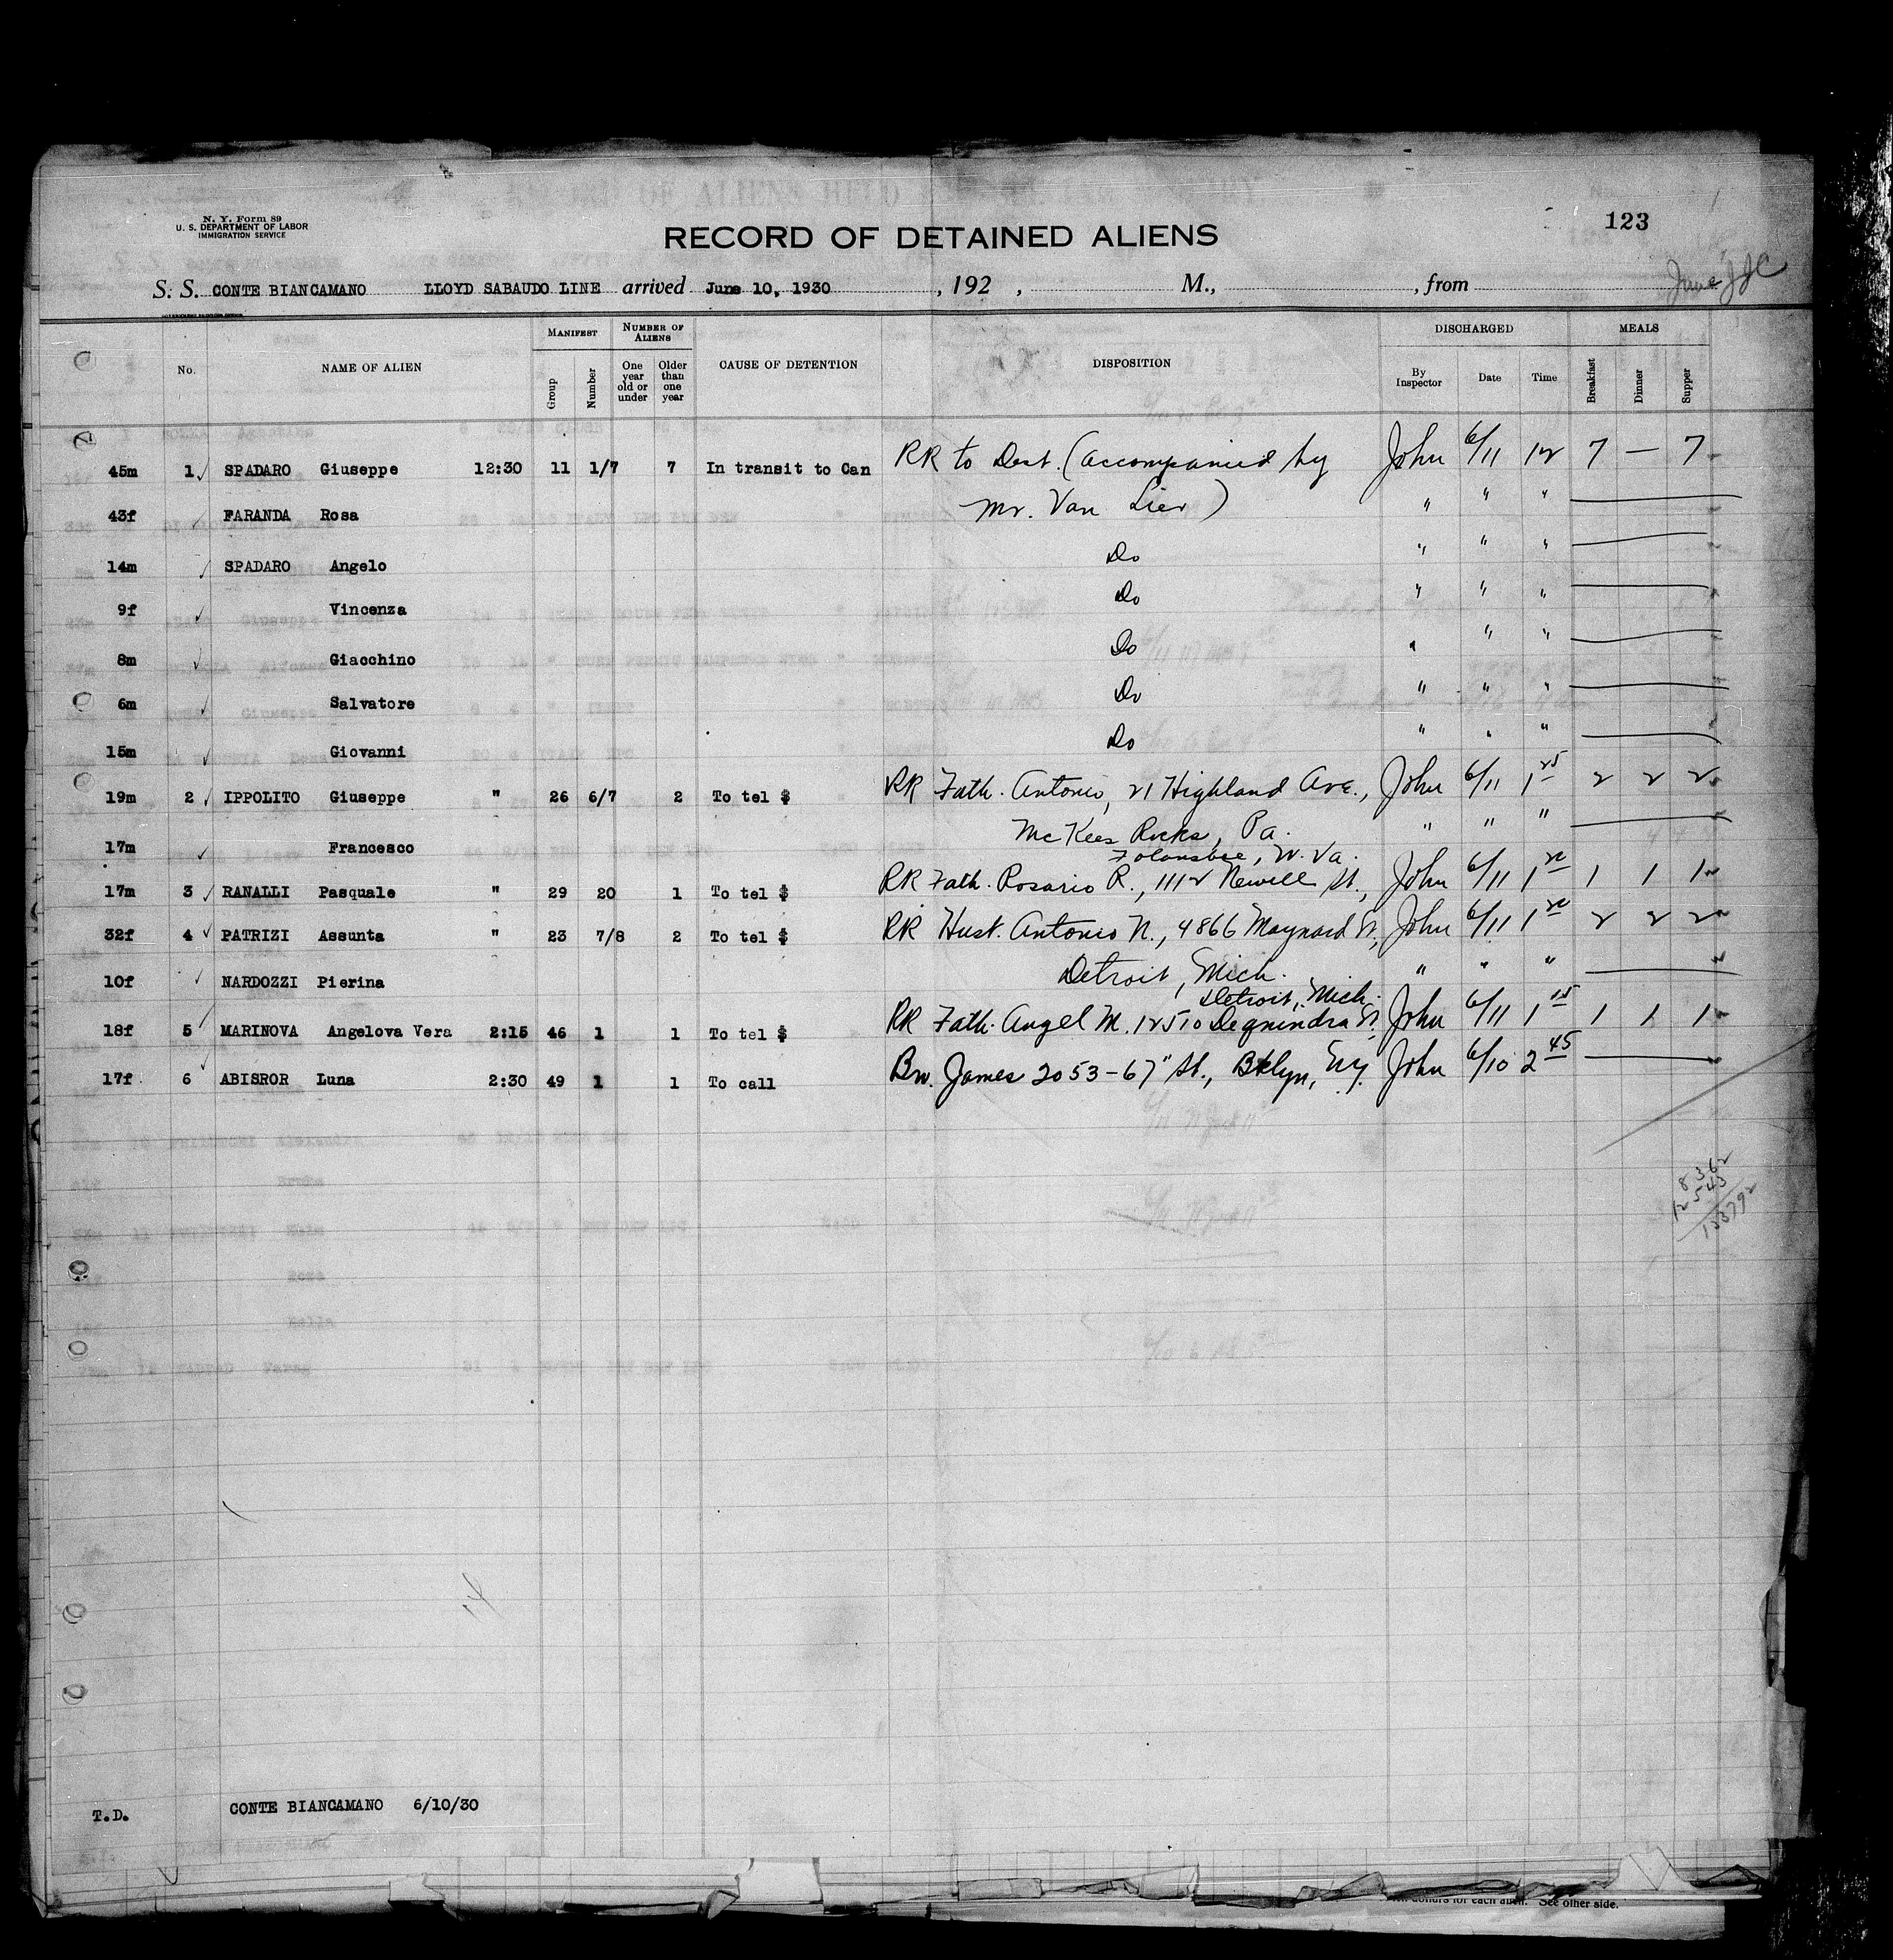 N. Y. Form 89
U. S. DEPARTMENT OF LABOR
IMMIGRATION SERVICE
123
RECORD OF DETAINED ALIENS
S. S. CONTE BIANCAMANO LLOYD SABAUDO LINE arrived June 10, 1930 , 192 , M., , from June
MANIFEST NUMBER OF ALIENS DISCHARGED MEALS
No. NAME OF ALIEN Group Number One year old or under Older than one year CAUSE OF DETENTION DISPOSITION By Inspector Date Time Breakfast Dinner Supper
45m 1 ✓ SPADARO Giuseppe 12:30 11 1/7 7 In transit to Can RR to Dest. (accompanied by John 6/11 12 7 — 7
43f ✓ FARANDA Rosa Mr. Van Lier) " " "
14m ✓ SPADARO Angelo Do " " "
9f ✓ Vincenza Do " " "
8m ✓ Giacchino Do " " "
6m ✓ Salvatore Do " " "
15m ✓ Giovanni Do " " "
19m 2 ✓ IPPOLITO Giuseppe " 26 6/7 2 To tel $ RR Fath. Antonio, 21 Highland Ave., John 6/11 1 25 2 2 2
17m ✓ Francesco McKees Rocks, Pa. " " "
Folansbee, W. Va.
17m 3 ✓ RANALLI Pasquale " 29 20 1 To tel $ RR Fath. Rosario R., 1112 Newell St., John 6/11 1 20 1 1 1
32f 4 ✓ PATRIZI Assunta " 23 7/8 2 To tel $ RR Husb. Antonio N., 4866 Maynard St, John 6/11 1 20 2 2 2
10f ✓ NARDOZZI Pierina Detroit, Mich. " " "
Detroit, Mich.
18f 5 ✓ MARINOVA Angelova Vera 2:15 46 1 1 To tel $ RR Fath. Angel M. 12510 Dequindra St, John 6/11 1 15 1 1 1
17f 6 ✓ ABISROR Luna 2:30 49 1 1 To call Bro. James 2053-67" St., Bklyn, NY. John 6/10 2 45
8362
12543
T.D. CONTE BIANCAMANO 6/10/30
for each alien. See other side.